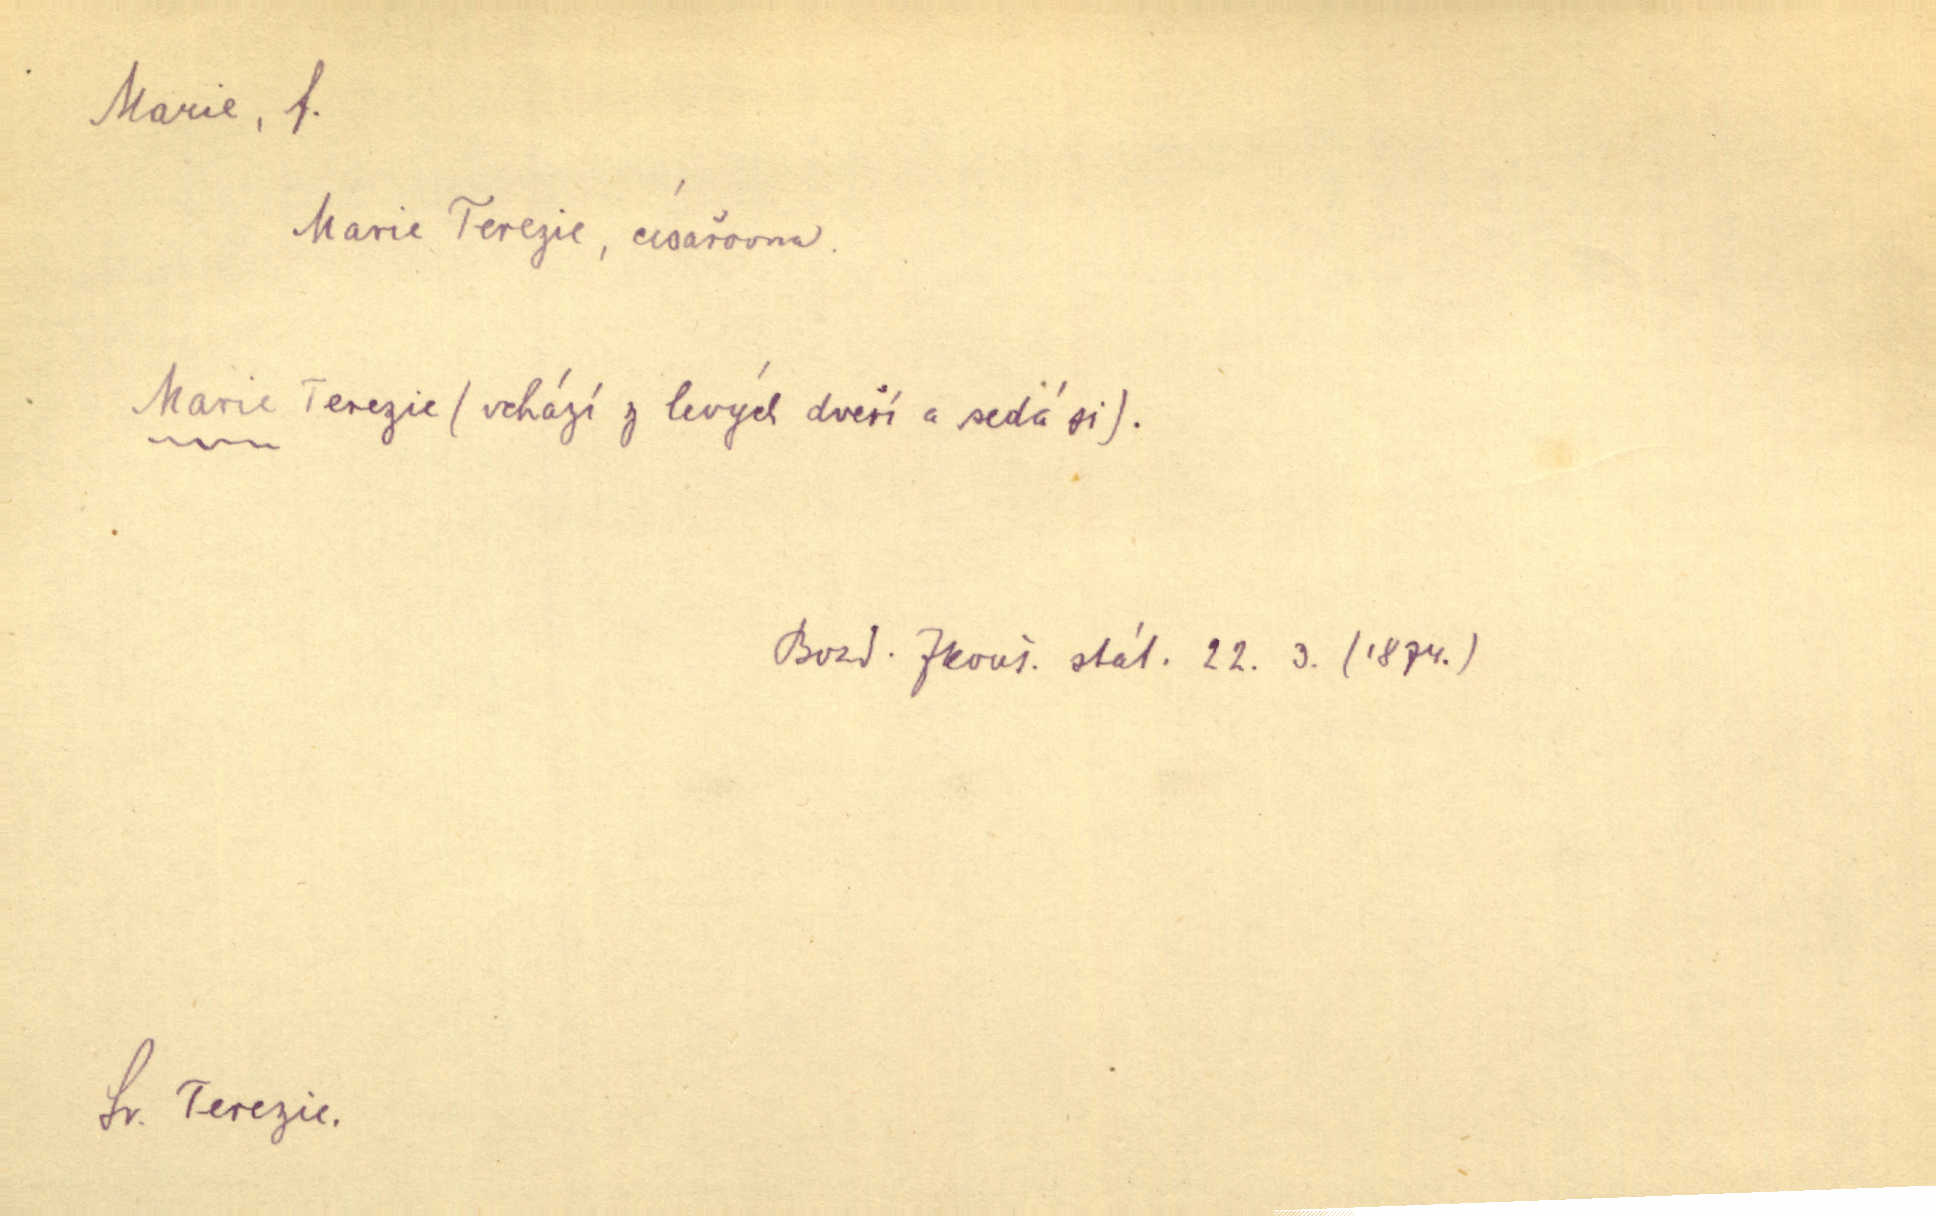 Marie, f.
Marie Terezie, císařovna.
Marie Terezie (vchází z levých dveří a sedá si).
Bozd. Zkouš. stát. 22. 3. (1874.)
Sr. Terezie.